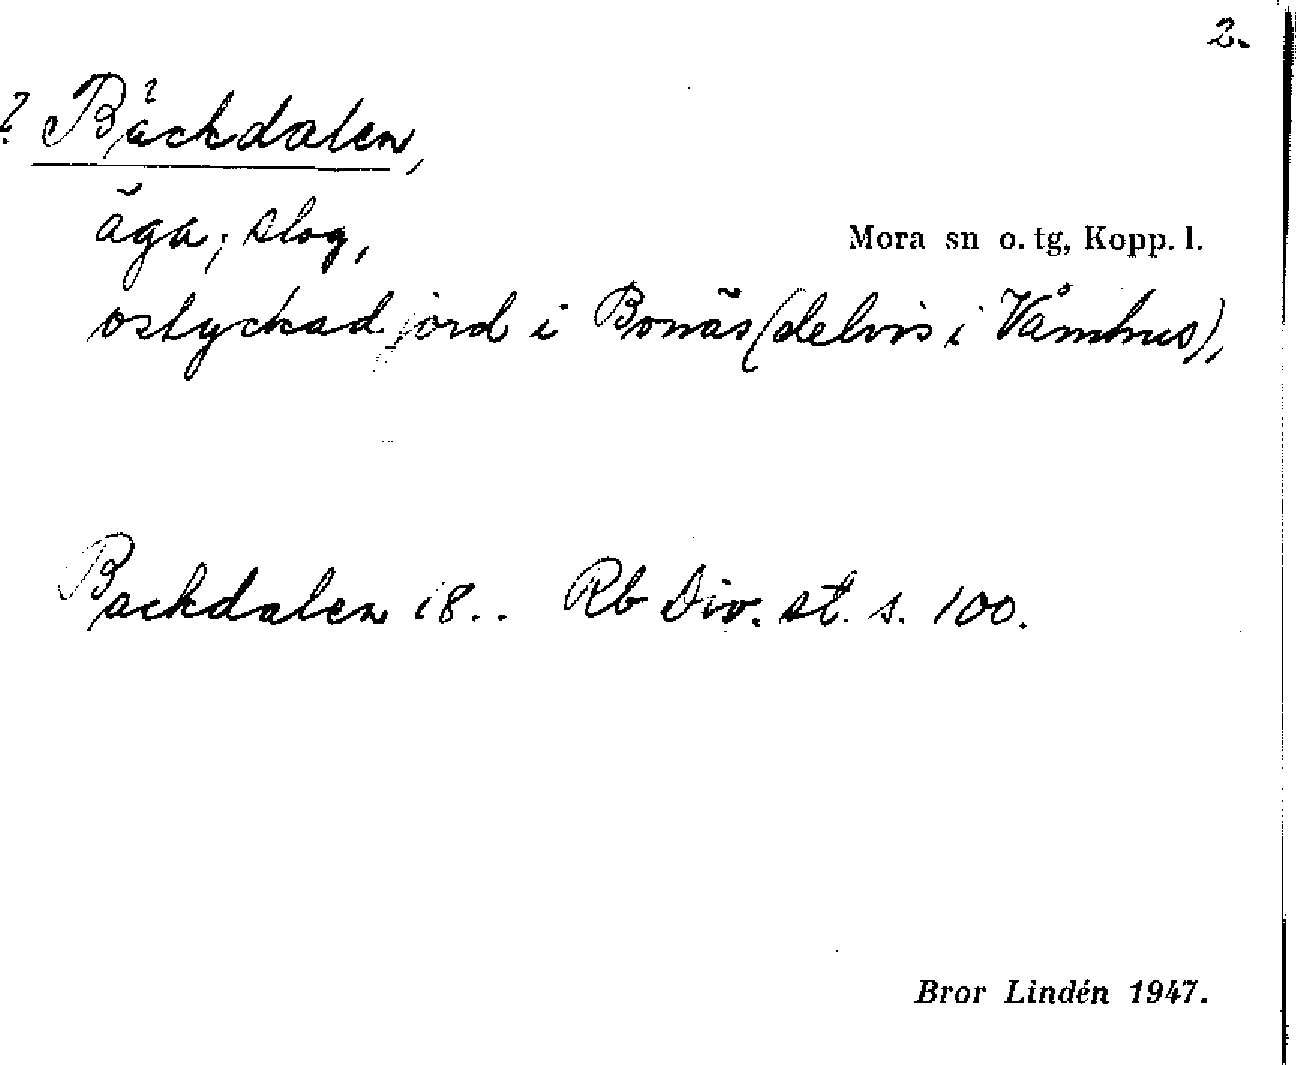 2.
? Bäckdalen,
äga; slog,
Mora sn o. tg, Kopp. l.
ostyckad jord i Bonäs (delvis i Våmhus),
Backdalen 18.. Rb Div. st. s. 100.
Bror Lindén 1947.